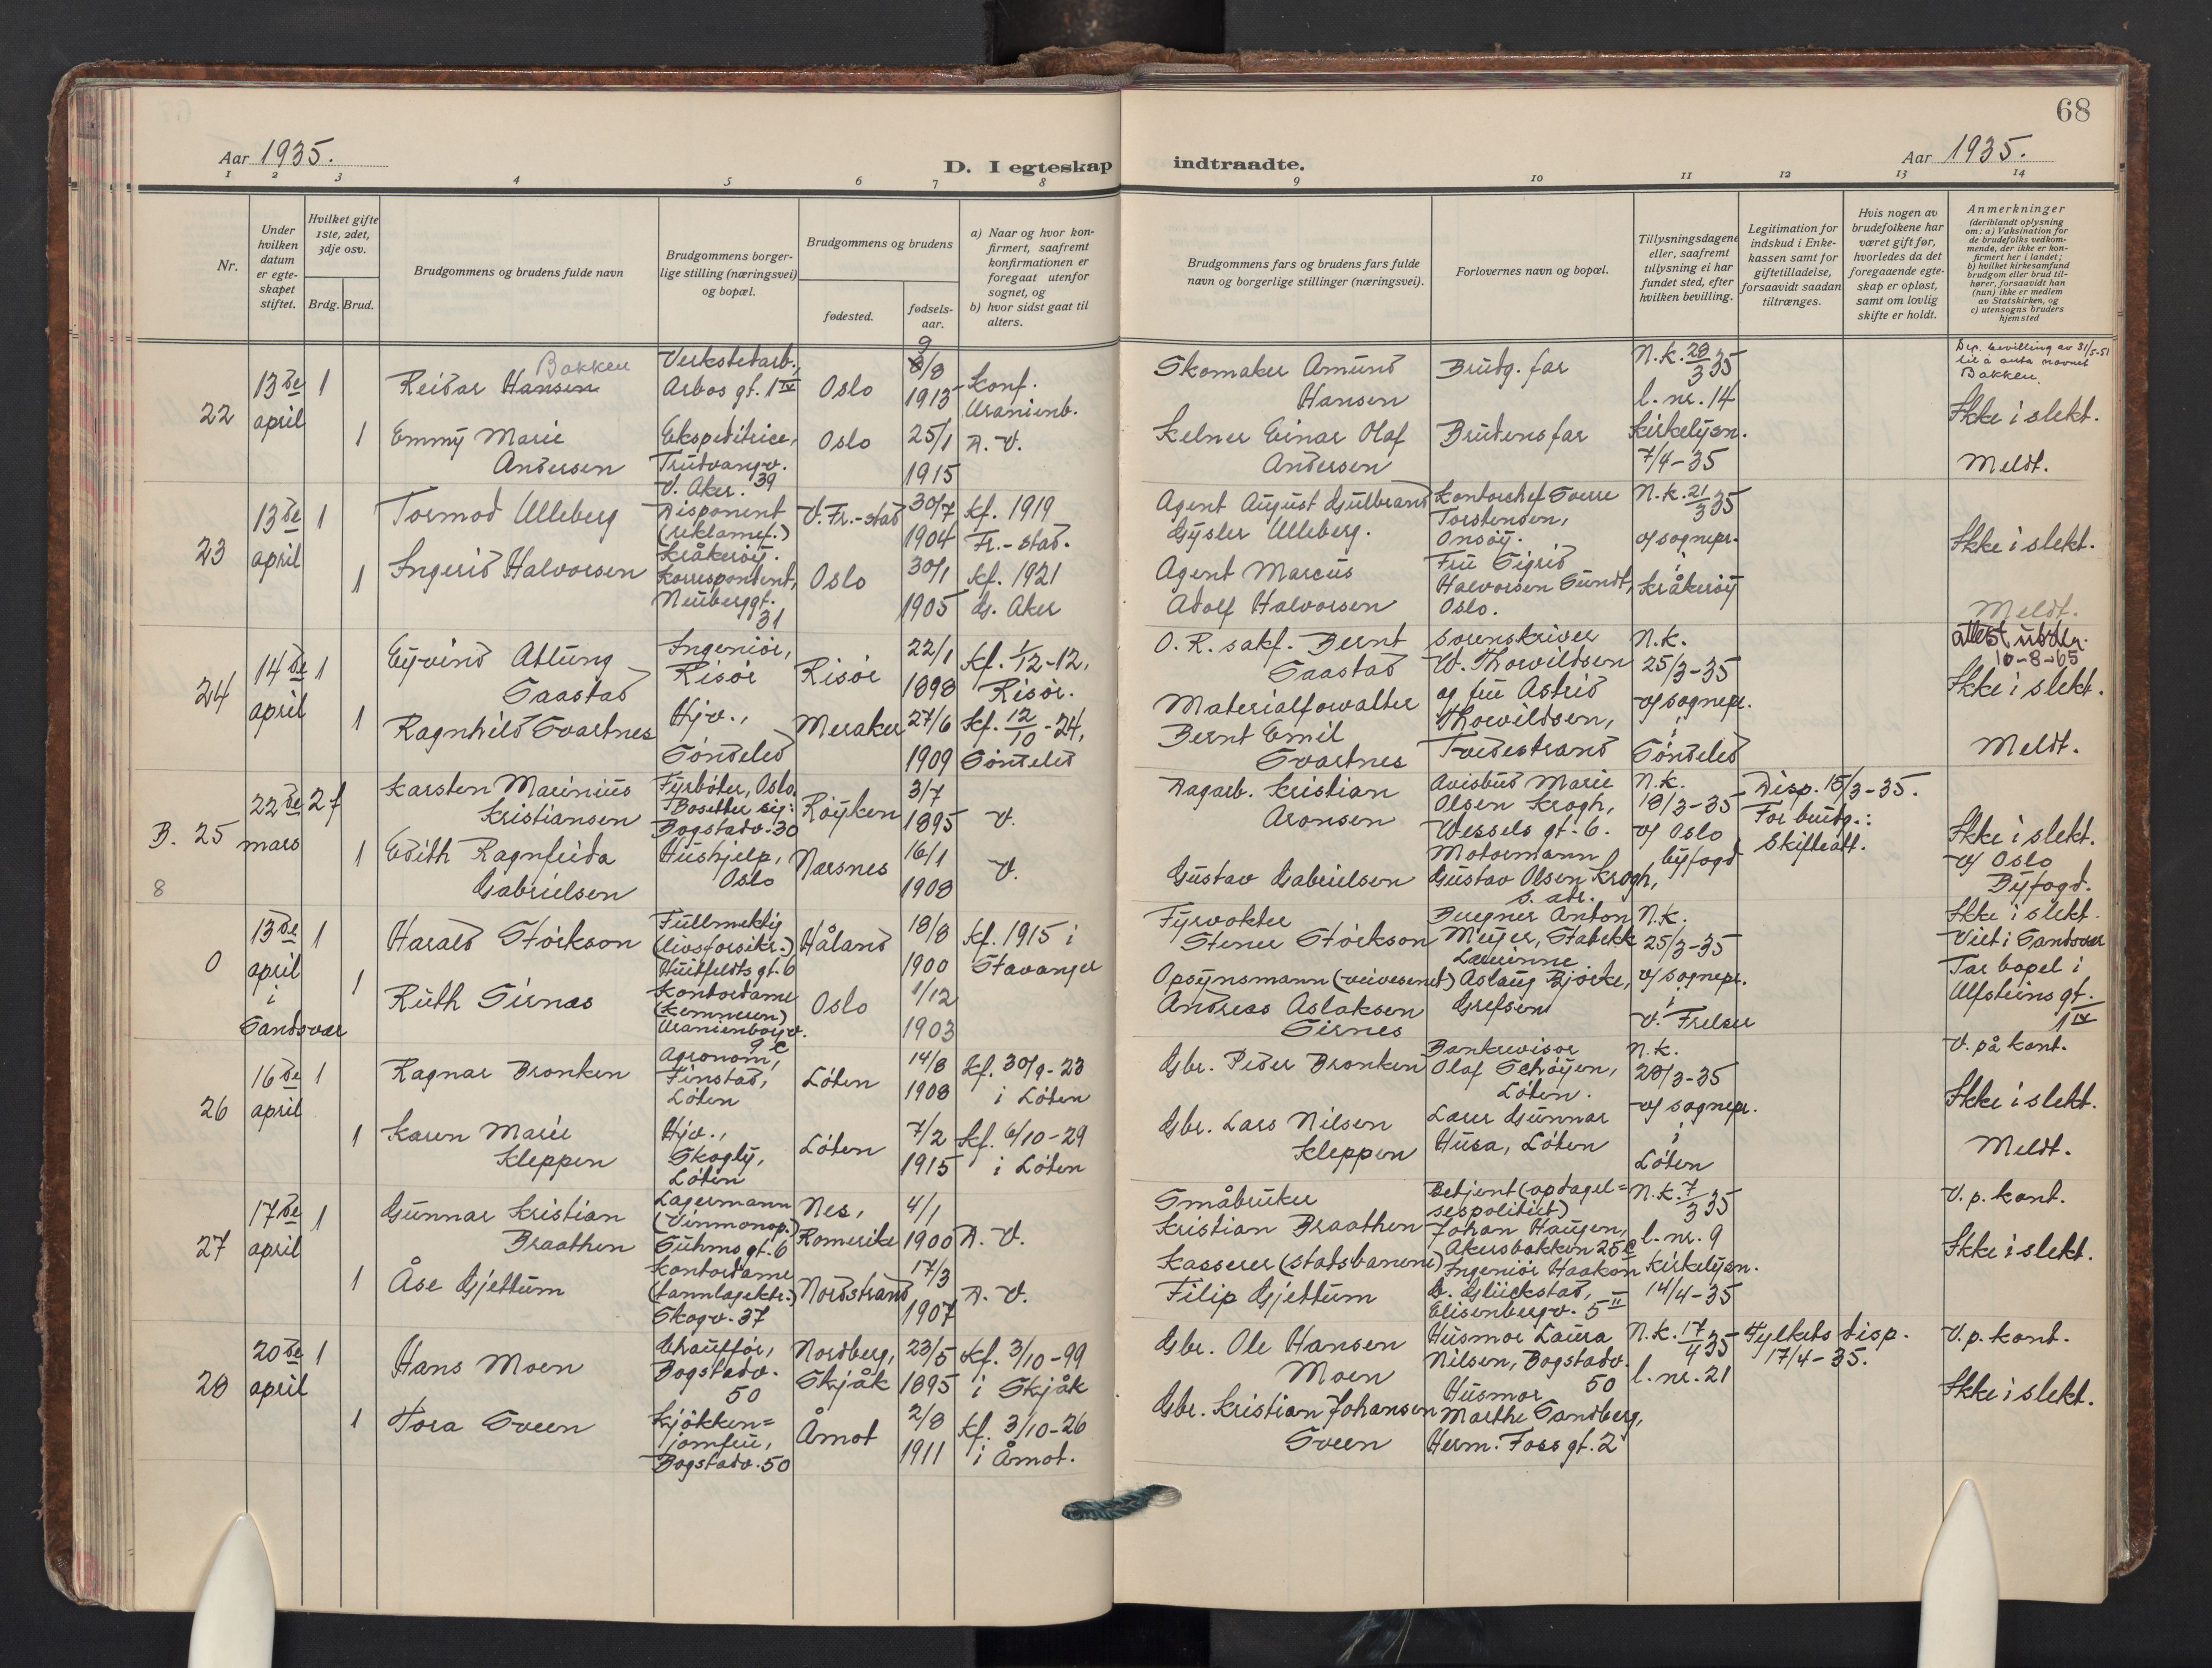 68
Aar 1935.
D. I egteskap indtraadte.
Aar 1935.
1 2 3 4 5 6 7 8 9 10 11 12 13 14
Nr.
Under hvilken datum er egte-skapet stiftet.
Hvilket gifte 1ste, 2det, 3dje osv.
Brdg. Brud.
Brudgommens og brudens fulde navn
Brudgommens borger-lige stilling (næringsvei) og bopæl.
Brudgommens og brudens
fødested.
fødsels-aar.
a) Naar og hvor kon-firmert, saafremt konfirmationen er foregaat utenfor sognet, og
b) hvor sidst gaat til alters.
Brudgommens fars og brudens fars fulde navn og borgerlige stillinger (næringsvei).
Forlovernes navn og bopæl.
Tillysningsdagene eller, saafremt tillysning ei har fundet sted, efter hvilken bevilling.
Legitimation for indskud i Enke-kassen samt for giftetilladelse, forsaavidt saadan tiltrænges.
Hvis nogen av brudefolkene har været gift før, hvorledes da det foregaaende egte-skap er opløst, samt om lovlig skifte er holdt.
Anmerkninger (deriblandt oplysning om: a) Vaksination for de brudefolks vedkom-mende, der ikke er kon-firmert her i landet; b) hvilket kirkesamfund brudgom eller brud til-hører, forsaavidt han (hun) ikke er medlem av Statskirken, og c) utensogns bruders hjemsted
22
13de april
1
Bakken
Reidar Hansen
Verkstedarb., Arbos gt. 1 IV
Oslo
9/8 1913
Konf. Uranienb.
Skomaker Amund Hansen
Brudg. far
N.k. 28/3 35
l. nr. 14
Dep. bevilling av 31/5-51 til å anta navnet Bakken.
Ikke i slekt.
1
Emmy Marie Andersen
Ekspeditrice, Trudvangv. 39 V. Aker.
Oslo
25/1 1915
D. V.
Kelner Einar Olaf Andersen
Brudens far
Kirkelysn. 7/4-35
Meldt.
23
13de april
1
Tormod Ulleberg
Disponent (reklamef.) Kråkerøy.
V. Fr.-stad
30/7 1904
Kf. 1919 Fr.-stad.
Agent August Gulbrand Gysler Ulleberg.
Kontorchef Sverre Torstensen, Onsøy.
N.k. 21/3 35
v/ sognepr. i Kråkerøy
Ikke i slekt.
1
Ingerid Halvorsen
Korrespondent, Neuberggt. 31
Oslo
30/1 1905
Kf. 1921 G. Aker
Agent Marcus Adolf Halvorsen
Fru Sigrid Halvorsen Sundt, Oslo.
Meldt.
24
14de april
1
Eyvind Attung Saastad
Ingeniør, Risør
Risør
22/1 1898
Kf. 1/12-12, Risør.
O. R. sakf. Bernt Saastad
Sorenskriver W. Thorvildsen og fru Astrid Thorvildsen, Tvedestrand
N.k. 25/3-35
v/ sognepr. i Søndeled
Attest utsten. 10-8-65
Ikke i slekt.
1
Ragnhild Svartnes
Hjv., Søndeled
Meraker
27/6 1909
Kf. 12/10-24, Søndeled
Materialforvalter Bernt Emil Svartnes
Meldt.
B. 25
8
22de mars
2 f
Karsten Marinius Kristiansen
Fyrbøter, Oslo. Bosetter sig: Bogstadv. 30
Røyken
3/7 1895
V.
Dagarb. Kristian Aronsen
Avisbud Marie Olsen Krogh, Wessels gt. 6.
N.k. 18/3-35
v/ Oslo byfogd
Disp. 15/3-35.
For brudg.: Skifteatt.
Ikke i slekt.
v/ Oslo Byfogd.
1
Edith Ragnfrida Gabrielsen
Hushjelp, Oslo
Nærsnes
16/1 1908
V.
Gustav Gabrielsen
Motormann Gustav Olsen Krogh, s. adr.
0
13de april i Sandsvær
1
Harald Størkson
Fullmektig (livsforsikr.) Huitfeldts gt. 6
Håland
18/8 1900
Kf. 1915 i Stavanger
Fyrvokter Stener Størkson
Buegner Anton Meyer, Stabekk
N.k. 25/3-35
v/ sognepr. i V. Frelser
Ikke i slekt.
Viet i Sandsvær
Tar bopel i Ulfsteins gt. 1 IV
1
Ruth Sirnes
Kontordame (Kemneren) Uranienborgv. 9 c
Oslo
1/12 1903
Opsynsmann (veivesenet) Andreas Aslaksen Sirnes
Lærerinne Aslaug Bjørke, Grefsen
26
16de april
1
Ragnar Bronken
Agronom, Finstad, Løten
Løten
14/8 1908
Kf. 30/9-23 i Løten
Gbr. Peder Bronken
Bankrevisor Olaf Schøyen, Løten.
N.k. 28/3-35
v/ sognepr. i Løten
V. på kont.
Ikke i slekt.
1
Karen Marie Kleppen
Hjv., Skogly, Løten
Løten
7/2 1915
Kf. 6/10-29 i Løten
Gbr. Lars Nilsen Kleppen
Lærer Gunnar Husa, Løten
Meldt.
27
17de april
1
Gunnar Kristian Braathen
Lagermann (Vinmonop.) Suhms gt. 6
Nes, Romerike
4/1 1900
D. V.
Småbruker Kristian Braathen
Betjent (opdagel=sespolitiet) Johan Haugen, Akersbakken 25 c
N.k. 7/3 35
l. nr. 9
V. p. kont.
Ikke i slekt.
1
Åse Gjettum
Kontordame (tannlægektr.) Skogv. 37
Nordstrand
17/3 1907
D. V.
Kasserer (statsbanene) Filip Gjettum
Ingeniør Haakon B. Glückstad, Elisenbergv. 5 II
Kirkelysn. 14/4-35
28
20de april
1
Hans Moen
Chauffør, Bogstadv. 50
Nordberg, Skjåk
23/5 1895
Kf. 3/10-99 i Skjåk
Gbr. Ole Hansen Moen
Husmor Laura Nilsen, Bogstadv. 50
N.k. 17/4 35
l. nr. 21
Fylkets disp. 17/4-35.
V. p. kont.
Ikke i slekt.
1
Tora Sveen
Kjøkken=jomfru, Bogstadv. 50
Åmot
2/8 1911
Kf. 3/10-26 i Åmot.
Gbr. Kristian Johansen Sveen
Husmor Marthe Sandberg, Herm. Foss gt. 2